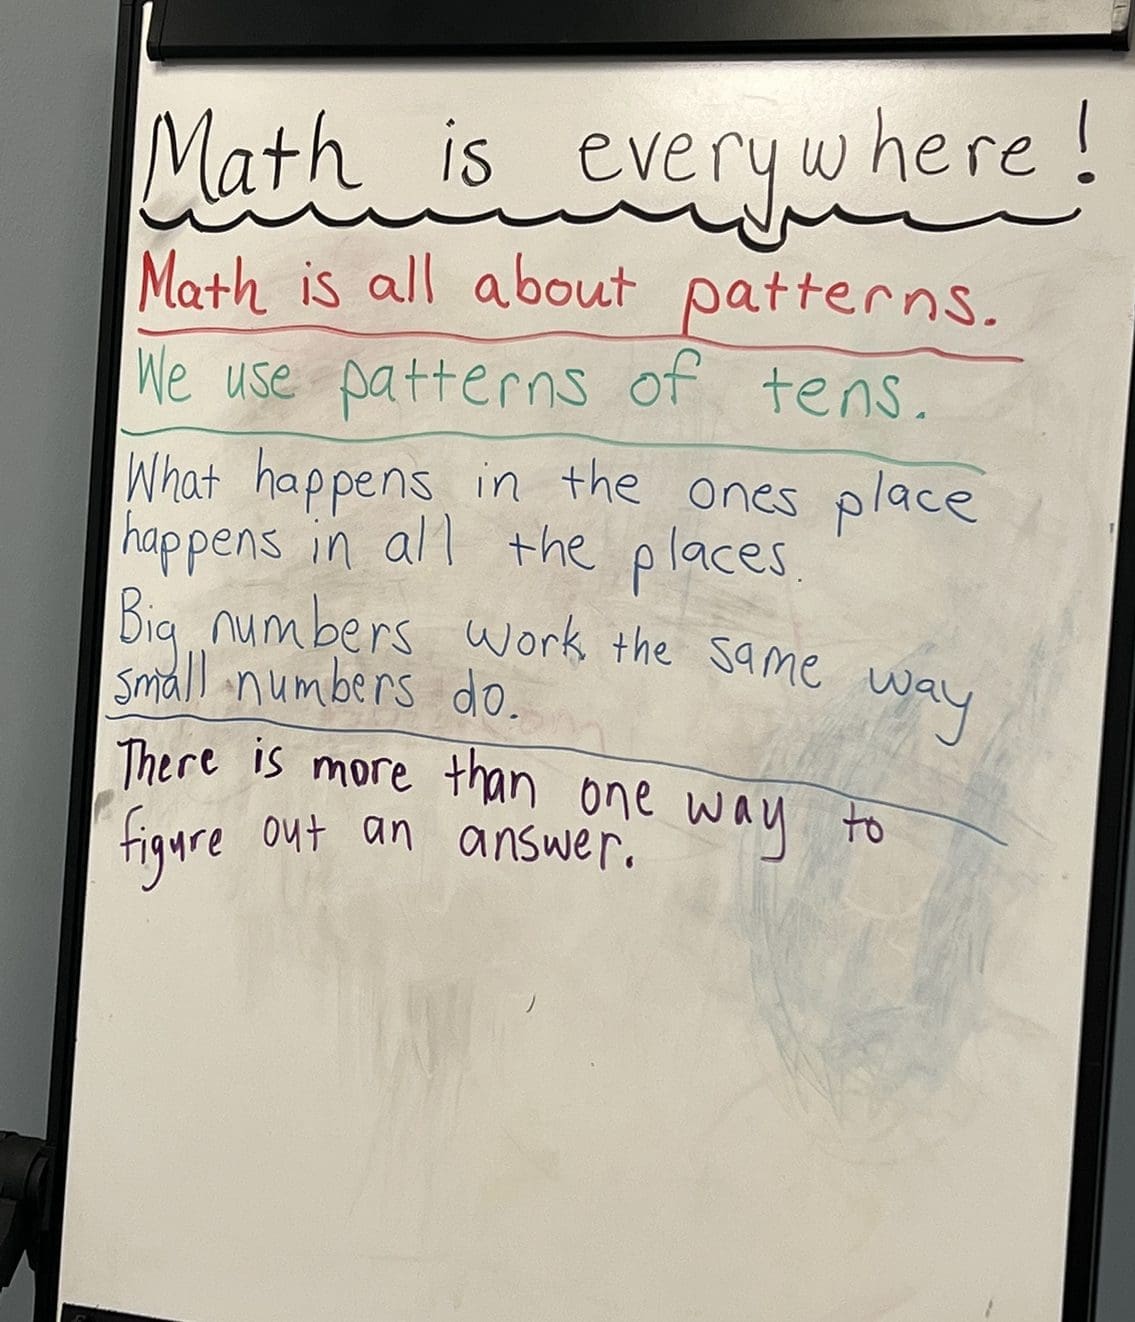 Math is everywhere!
Math is all about patterns.
We use patterns of tens.
What happens in the ones place
happens in all the places.
Big numbers work the same way
small numbers do.
There is more than one way to
figure out an answer.